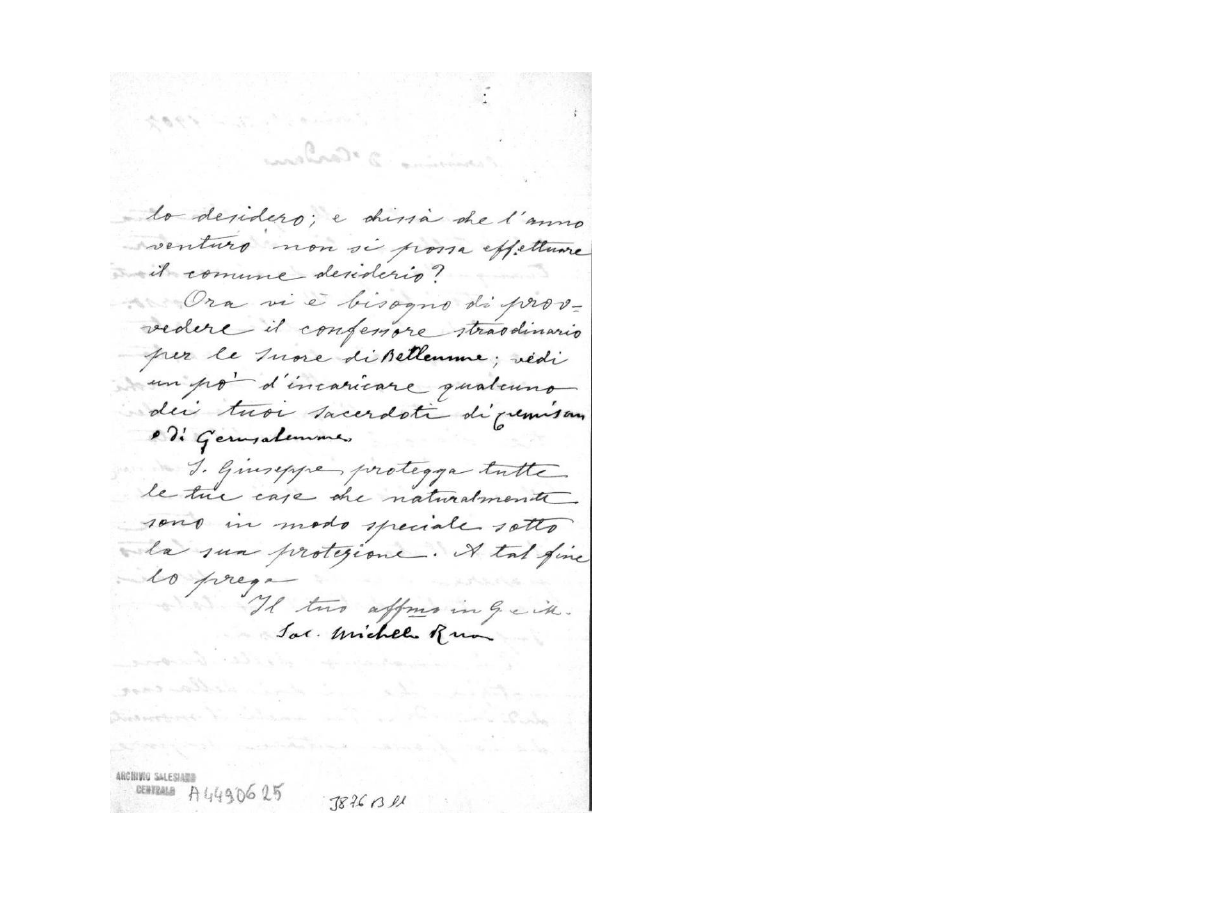 lo desidero; e chissà che l'anno
venturo non si possa effettuare
il comune desiderio?
Ora vi è bisogno di prov=
vedere il confessore straodinario
per le Suore di Betlemme; vedi
un pò d'incaricare qualcuno
dei tuoi sacerdoti di Cremisan
o di Gerusalemme.
S. Giuseppe protegga tutte
le tue case che naturalmente
sono in modo speciale sotto
la sua protezione. A tal fine
lo prega
Il tuo affmo in G e M.
Sac. Michele Rua
ARCHIVIO SALESIANO
CENTRALE A4490625
3876 B 11